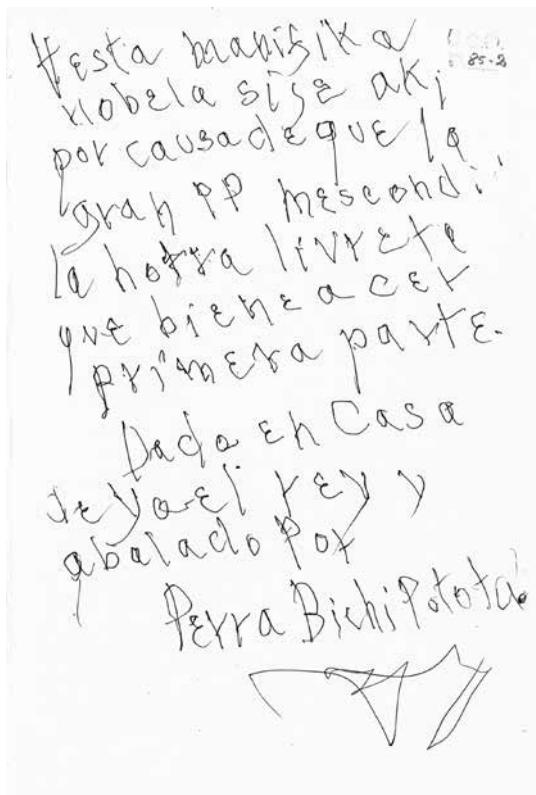 Hesta manifika
nobela sige aki
por causa de que la
gran PP mescondi..
la hotra livreta
que biene a cer
primera parte.
85-2
Dado en Casa
de yo el rey y
abalado por
Perra Bichi Potota.